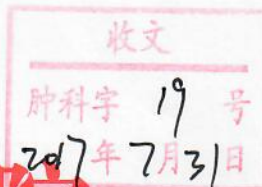 收文
肿科字 19 号
2017年7月31日